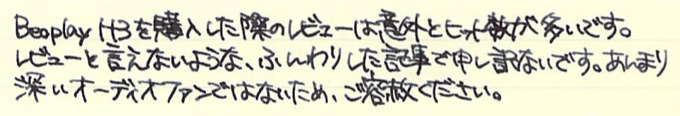 Beoplay H3を購入した際のレビューは意外とヒット数が多いです。
レビューと言えないような、ふんわりした記事で申し訳ないです。あんまり
深いオーディオファンではないため、ご容赦ください。